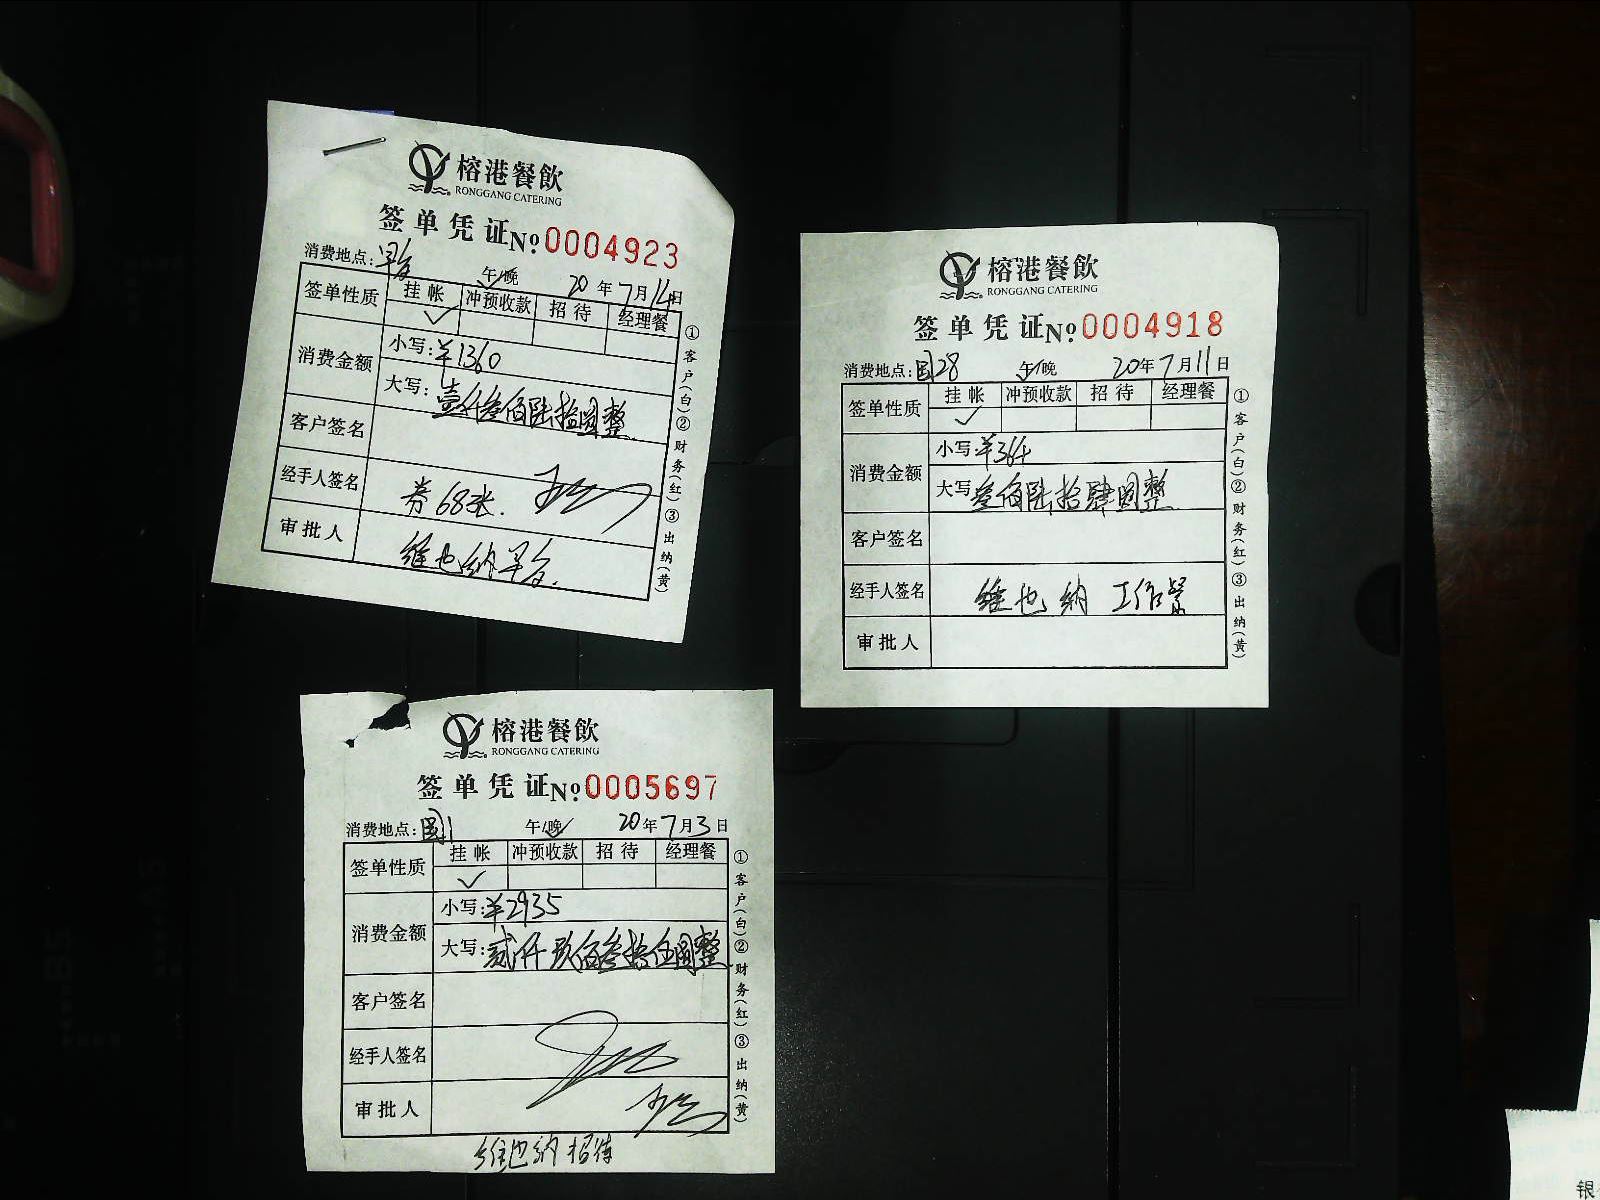 榕港餐飲
RONGGANG CATERING
签单凭证 No. 0004923
消费地点: 早台 午/晚 20年7月14日
签单性质 挂帐 冲预收款 招待 经理餐
✓
消费金额 小写: ¥1360
大写: 壹仟叁佰陆拾圆整
客户签名
经手人签名 券68张.
审批人 维也纳早台.
①客户(白)②财务(红)③出纳(黄)
榕港餐飲
RONGGANG CATERING
签单凭证 No. 0004918
消费地点: 国28 午/晚 20年7月11日
签单性质 挂帐 冲预收款 招待 经理餐
✓
消费金额 小写: ¥364
大写 叁佰陆拾肆圆整
客户签名
经手人签名 维也纳 工作餐
审批人
①客户(白)②财务(红)③出纳(黄)
榕港餐飲
RONGGANG CATERING
签单凭证 No. 0005697
消费地点: 国1 午/晚 20年7月3日
签单性质 挂帐 冲预收款 招待 经理餐
✓
消费金额 小写: ¥2935
大写: 贰仟玖佰叁拾伍圆整
客户签名
经手人签名
审批人
维也纳招待
①客户(白)②财务(红)③出纳(黄)
银